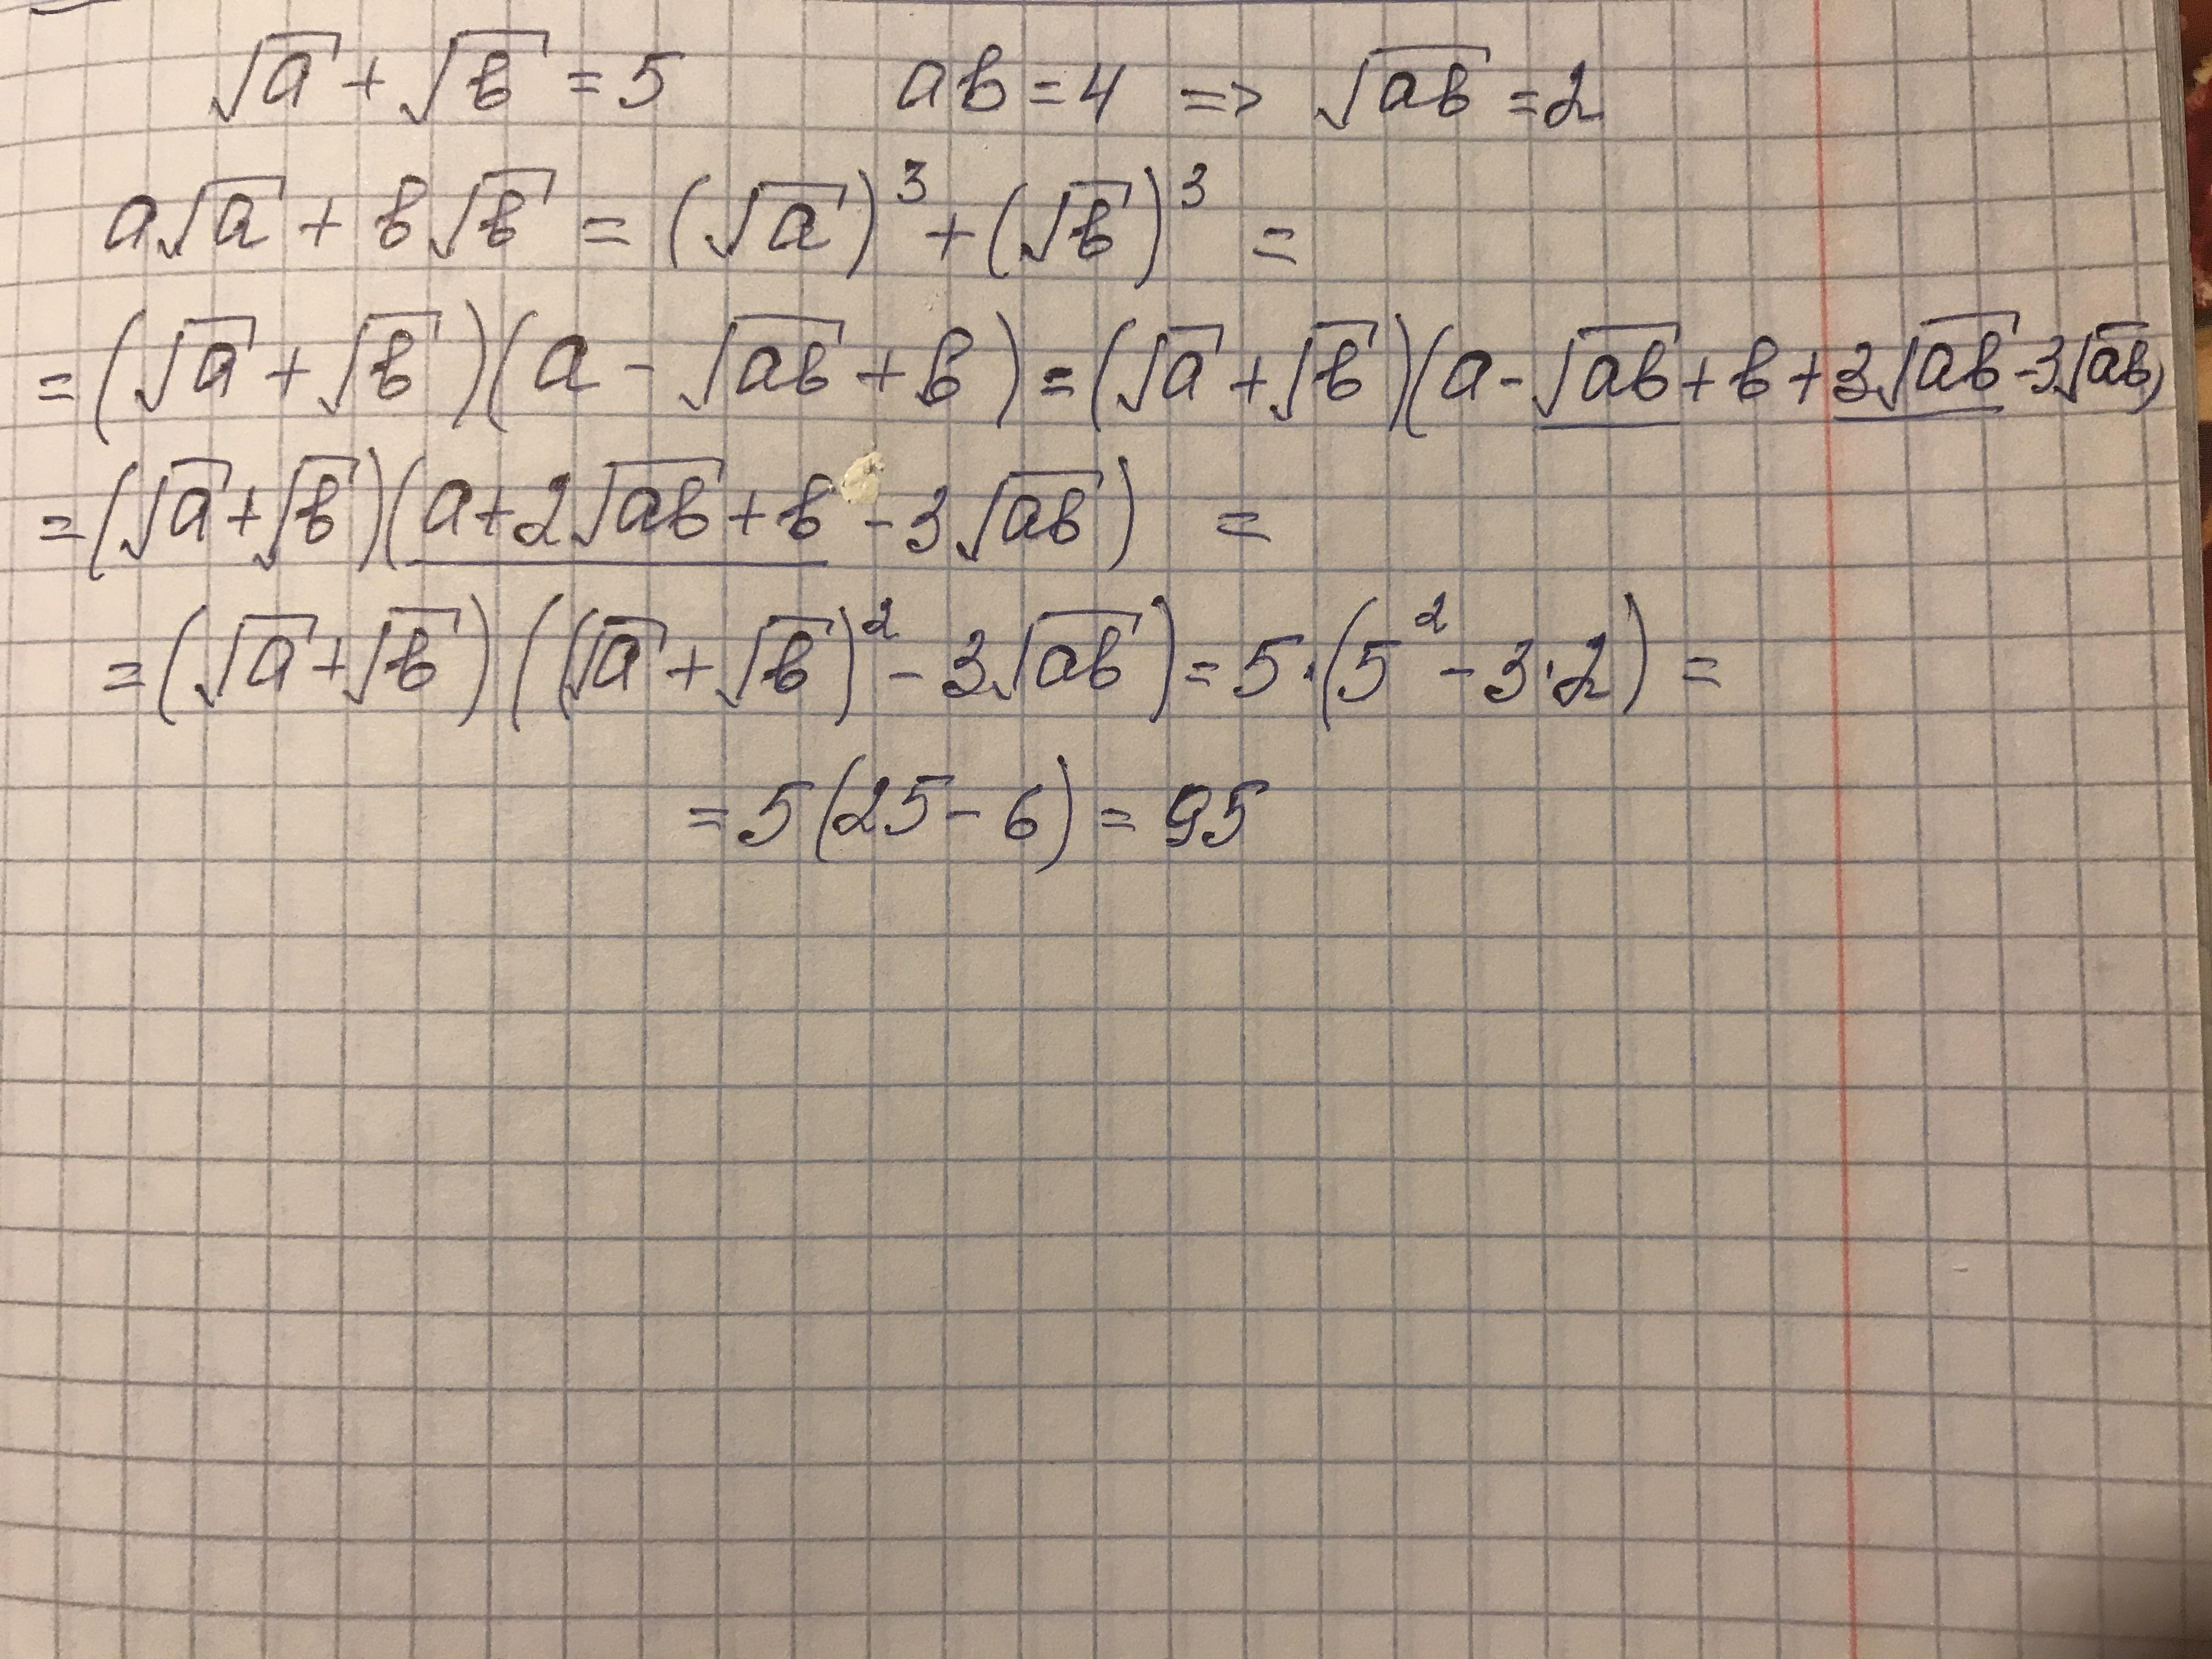 √a + √b = 5 ab = 4 => √ab = 2
a√a + b√b = (√a)³ + (√b)³ =
= (√a + √b)(a - √ab + b) = (√a + √b)(a - √ab + b + 3√ab - 3√ab)
= (√a + √b)(a + 2√ab + b - 3√ab) =
= (√a + √b)((√a + √b)² - 3√ab) = 5·(5² - 3·2) =
= 5(25 - 6) = 95